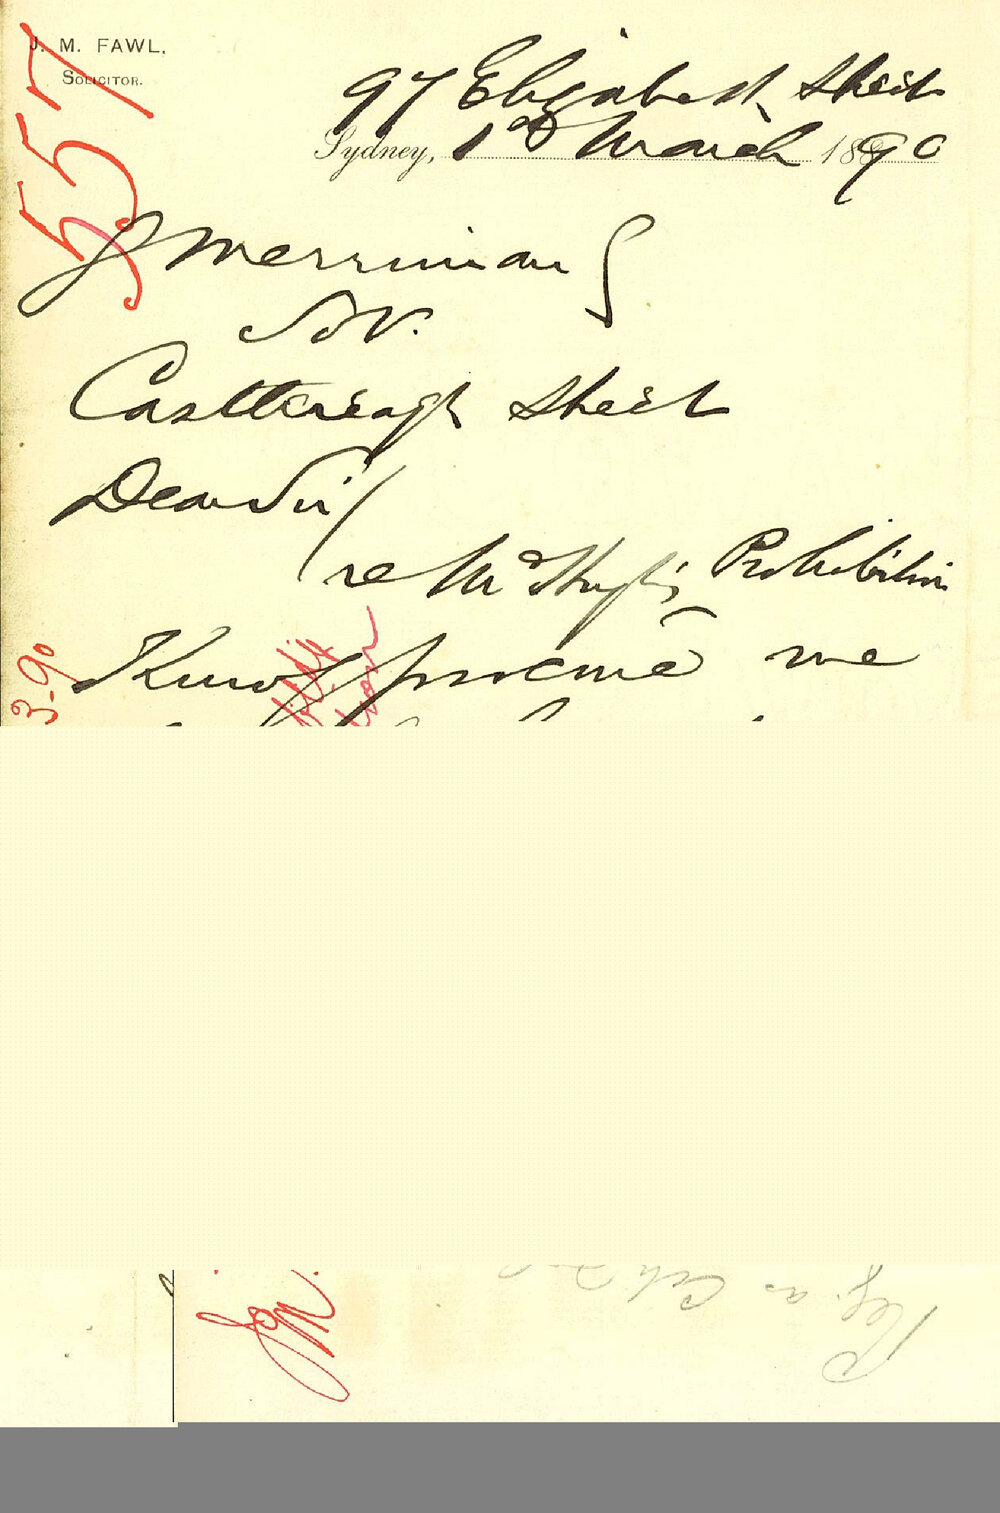 J. M. FAWL,
SOLICITOR.
557
97 Elizabeth Street
Sydney, 1st March 1890
J Merriman
Castlereagh Street
Dear Sir/
re McHugh's Prohibition
Kindly procure me
3.90